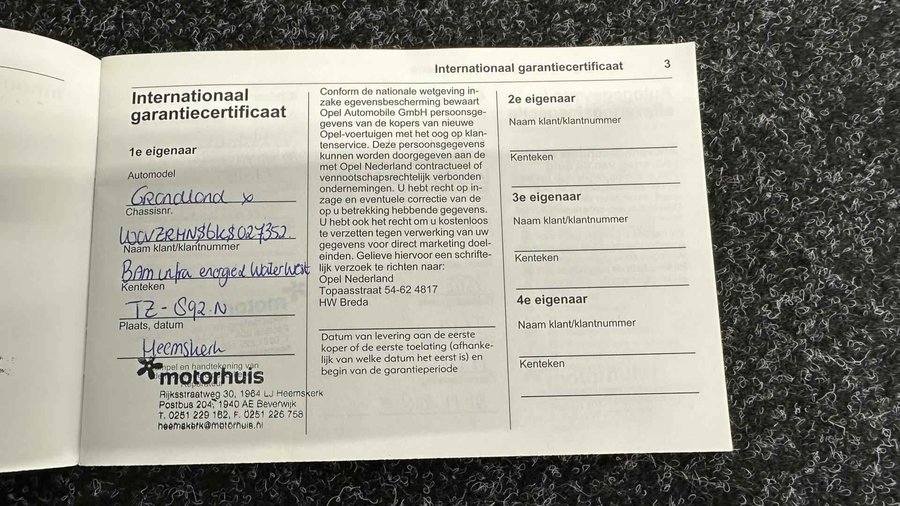 Internationaal garantiecertificaat 3
Internationaal
garantiecertificaat
1e eigenaar
Automodel
Grandland x
Chassisnr.
Naam klant/klantnummer
BAM infra energie & Water West
Kenteken
TZ-892.N
Plaats, datum
Heemskerk
pel en handtekening van
motorhuis
Rijksstraatweg 30, 1964 LJ Heemskerk
Postbus 204, 1940 AE Beverwijk
T. 0251 229 162, F. 0251 226 758
heemskerk@motorhuis.nl
Conform de nationale wetgeving in-
zake egevensbescherming bewaart
Opel Automobile GmbH persoonsge-
gevens van de kopers van nieuwe
Opel-voertuigen met het oog op klan-
tenservice. Deze persoonsgegevens
kunnen worden doorgegeven aan de
met Opel Nederland contractueel of
vennootschapsrechtelijk verbonden
ondernemingen. U hebt recht op in-
zage en eventuele correctie van de
op u betrekking hebbende gegevens.
U hebt ook het recht om u kostenloos
te verzetten tegen verwerking van uw
gegevens voor direct marketing doel-
einden. Gelieve hiervoor een schrifte-
lijk verzoek te richten naar:
Opel Nederland
Topaasstraat 54-62 4817
HW Breda
Datum van levering aan de eerste
koper of de eerste toelating (afhanke-
lijk van welke datum het eerst is) en
begin van de garantieperiode
2e eigenaar
Naam klant/klantnummer
Kenteken
3e eigenaar
Naam klant/klantnummer
Kenteken
4e eigenaar
Naam klant/klantnummer
Kenteken